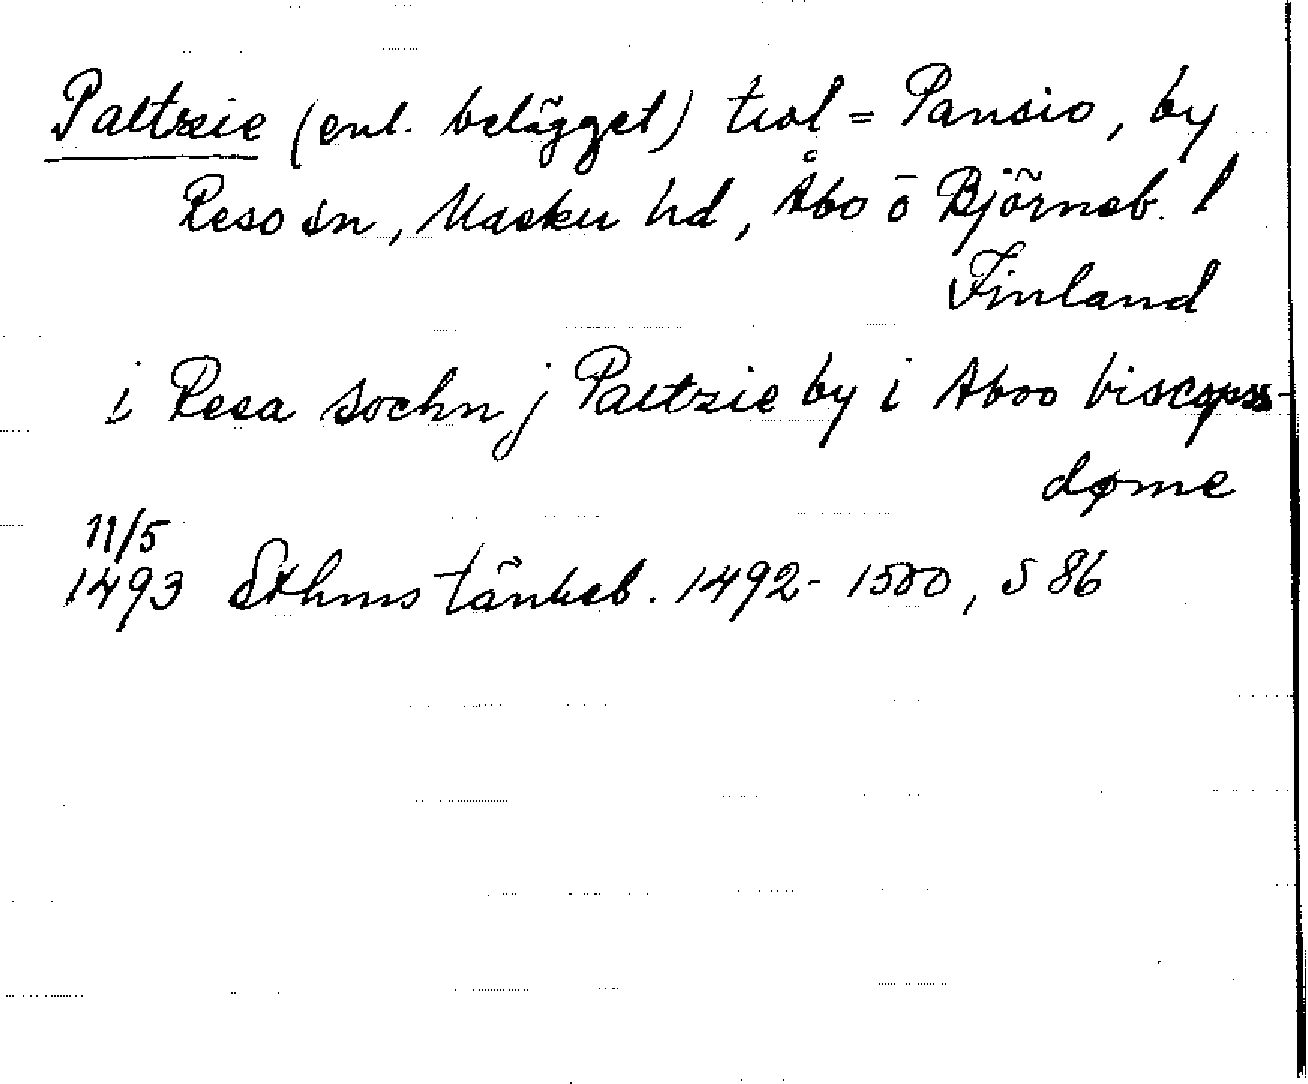 Paltzie (enl. belägget) trol = Pansio, by
Reso sn, Masku hd, Åbo o Björneb. l
Finland
i Resa sochn j Paltzie by i Aboo biscopss-
døme
11/5
1493 Sthms tänkeb. 1492-1500, s 86